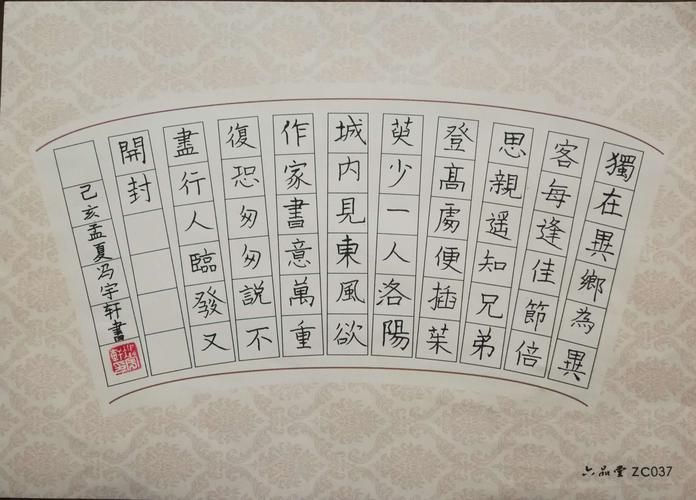 獨在異鄉為異
客每逢佳節倍
思親遥知兄弟
登髙處便插茱
萸少一人洛陽
城内見東風欲
作家書意萬重
復恐匆匆說不
盡行人臨發又
開封
己亥孟夏冯宇轩書
六品堂 ZC037